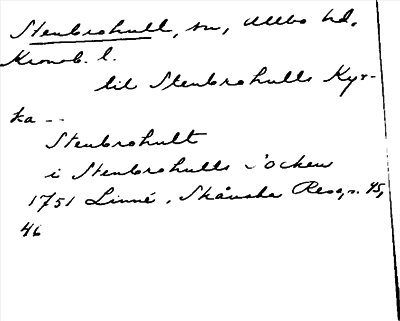 Stenbrohult, sn, Allbo hd,
Kronob. l.
till Stenbrohults Kyr-
ka --
Stenbrohult
i Stenbrohults Socken
1751 Linné, Skånska Resa, s. 45,
46